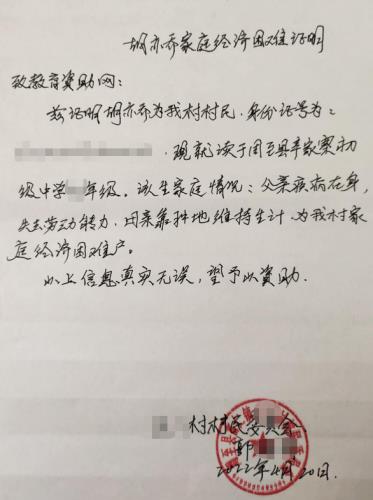 胡亦乔家庭经济困难证明
致教育资助网：
兹证明胡亦乔为我村村民，身份证号为：
，现就读于周至县辛家寨初
级中学 年级。该生家庭情况：父亲疾病在身，
失去劳动能力，母亲靠种地维持生计，为我村家
庭经济困难户。
以上信息真实无误，望予以资助。
村村民委员会
郭
2022年4月20日.